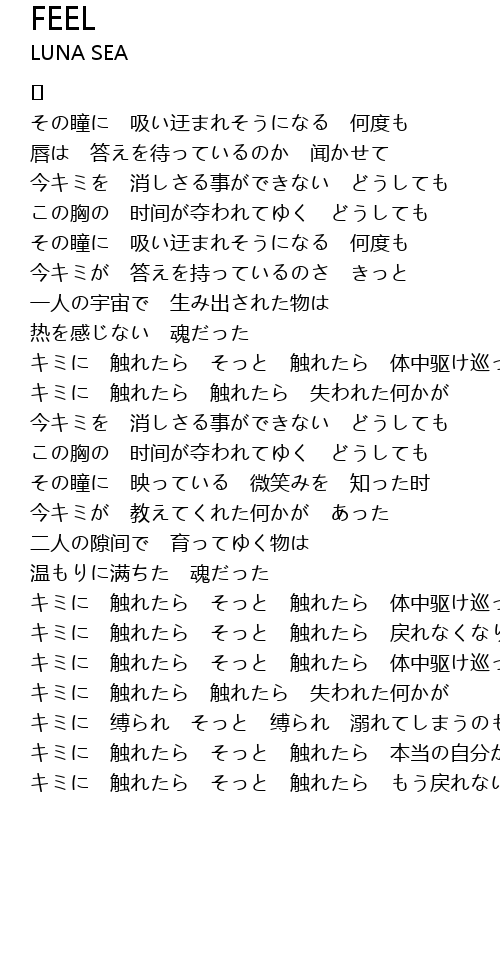 FEEL
LUNA SEA
その瞳に　吸い迂まれそうになる　何度も
唇は　答えを待っているのか　闻かせて
今キミを　消しさる事ができない　どうしても
この胸の　时间が夺われてゆく　どうしても
その瞳に　吸い迂まれそうになる　何度も
今キミが　答えを持っているのさ　きっと
一人の宇宙で　生み出された物は
热を感じない　魂だった
キミに　触れたら　そっと　触れたら　体中驱け巡っ
キミに　触れたら　触れたら　失われた何かが
今キミを　消しさる事ができない　どうしても
この胸の　时间が夺われてゆく　どうしても
その瞳に　映っている　微笑みを　知った时
今キミが　教えてくれた何かが　あった
二人の隙间で　育ってゆく物は
温もりに满ちた　魂だった
キミに　触れたら　そっと　触れたら　体中驱け巡っ
キミに　触れたら　そっと　触れたら　戻れなくなり
キミに　触れたら　そっと　触れたら　体中驱け巡っ
キミに　触れたら　触れたら　失われた何かが
キミに　缚られ　そっと　缚られ　溺れてしまうのも
キミに　触れたら　そっと　触れたら　本当の自分が
キミに　触れたら　そっと　触れたら　もう戻れない